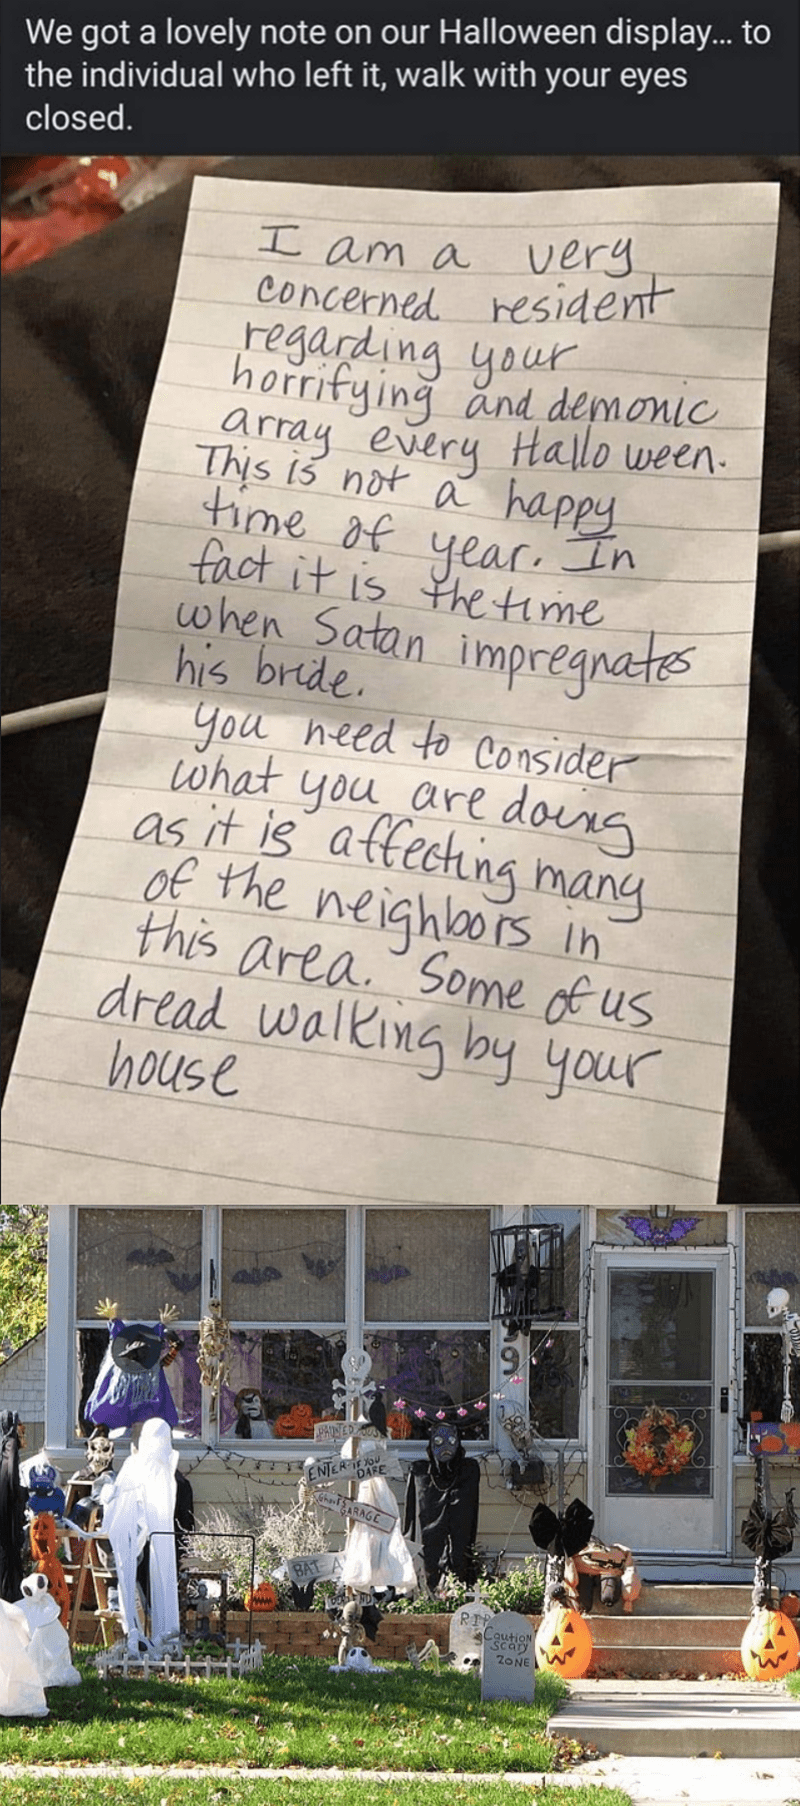 We got a lovely note on our Halloween display... to
the individual who left it, walk with your eyes
closed.
I am a very
concerned resident
regarding your
horrifying and demonic
array every Hallo ween.
This is not a happy
time of year. In
fact it is the time
when Satan impregnates
his bride.
you need to consider
what you are doing
as it is affecting many
of the neighbors in
this area. Some of us
dread walking by your
house
9
ENTER IF YOU
DARE
GARAGE
BAT
RIP
Caution
Scary
ZONE